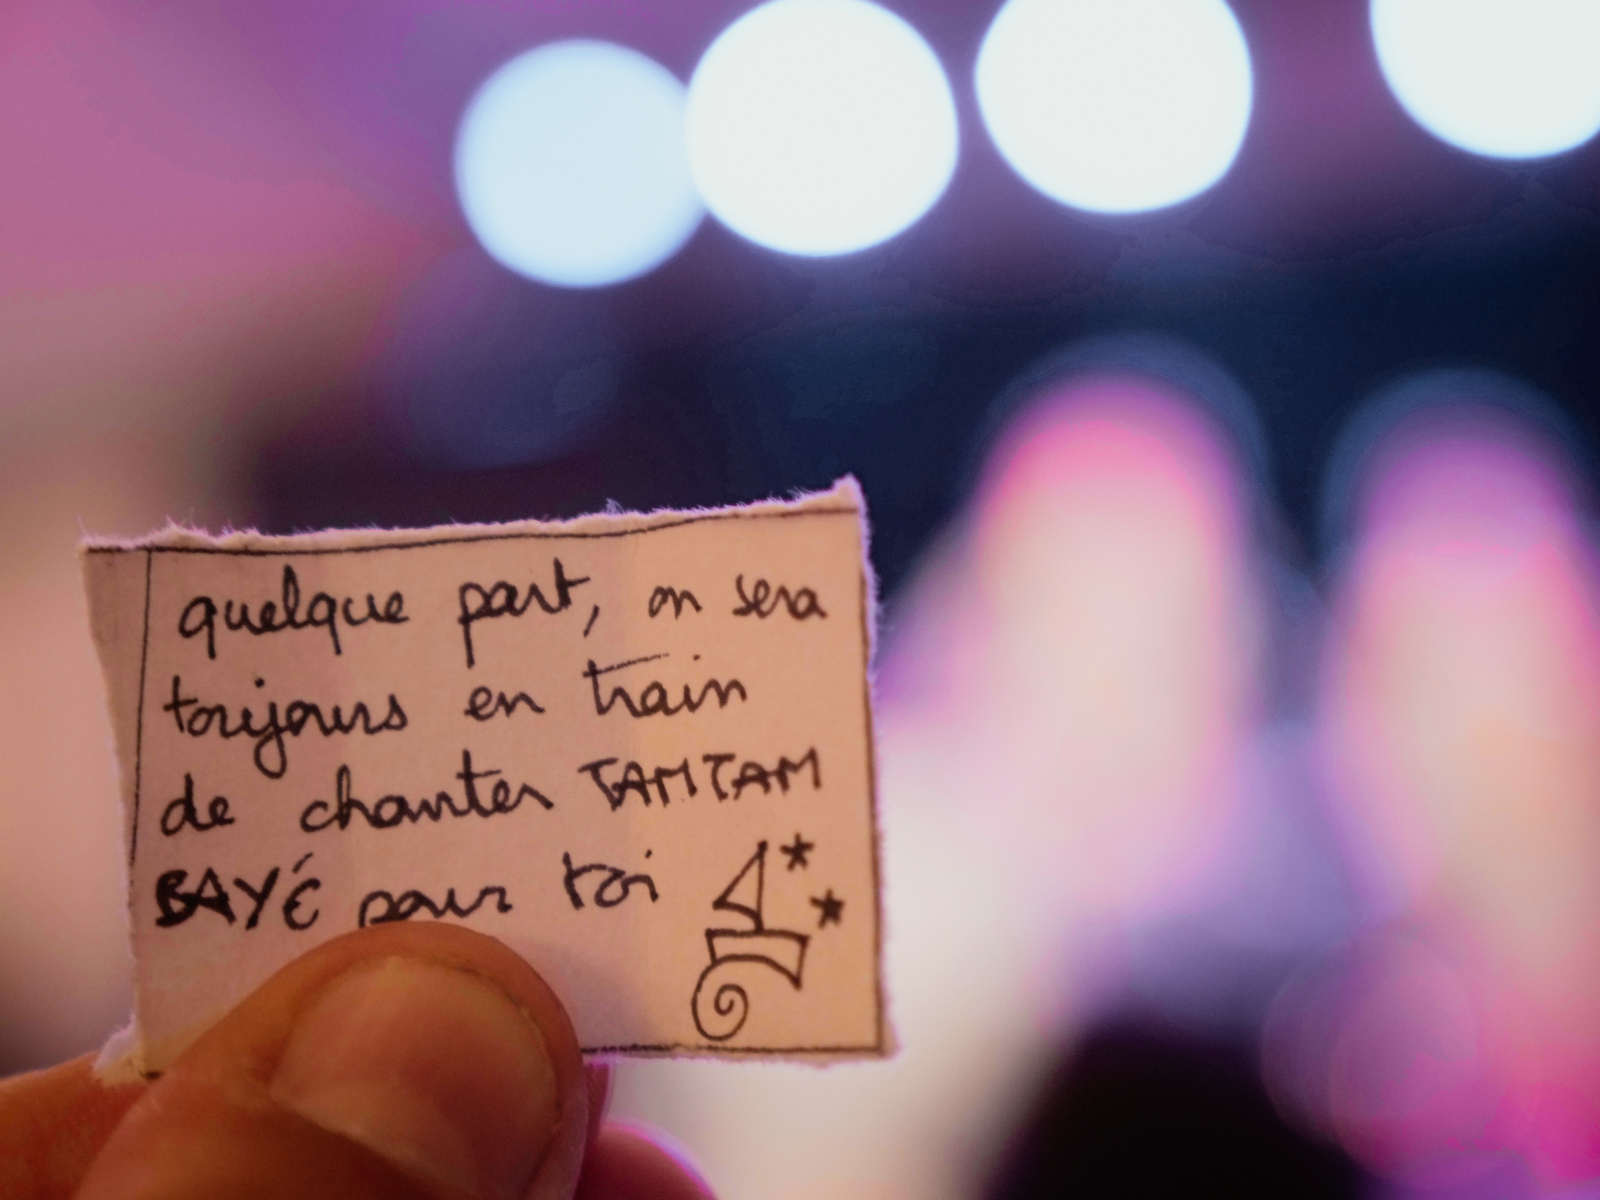 quelque part, on sera
toujours en train
de chanter TAMTAM
BAYÉ pour toi